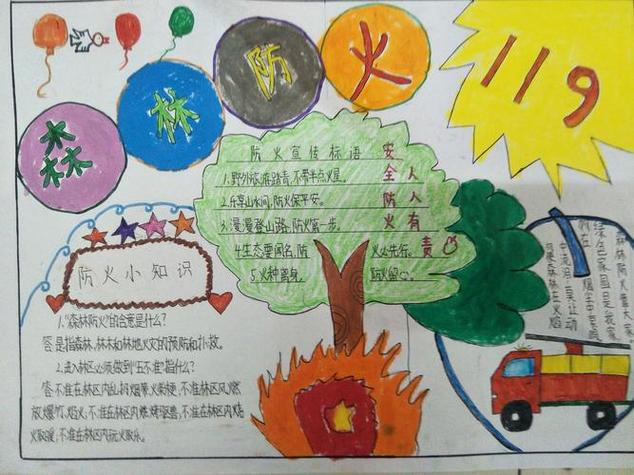 森林防火
119
防火宣传标语
1.野外旅 踏青,不带半点火星。
2.乐享山水间,防火保平安。
3.漫漫登山路,防火第一步。
4.生态要闻名,防火必先行。
5.火种离身,防火留心。
安全人人有责
防火小知识
1."森林防火"的含意是什么?
答:是指森林、林木和林地火灾的预防和扑救。
2.进入林区必须做到"五不准"指什么?
答:不准在林区内乱扔烟蒂、火柴梗,不准在林区风燃
放爆竹、焰火;不准在林区内烧 驱兽,不准在林区内烧
火取暖;不准在林区内玩火取乐。
森林防火靠大家
绿色家园是我家